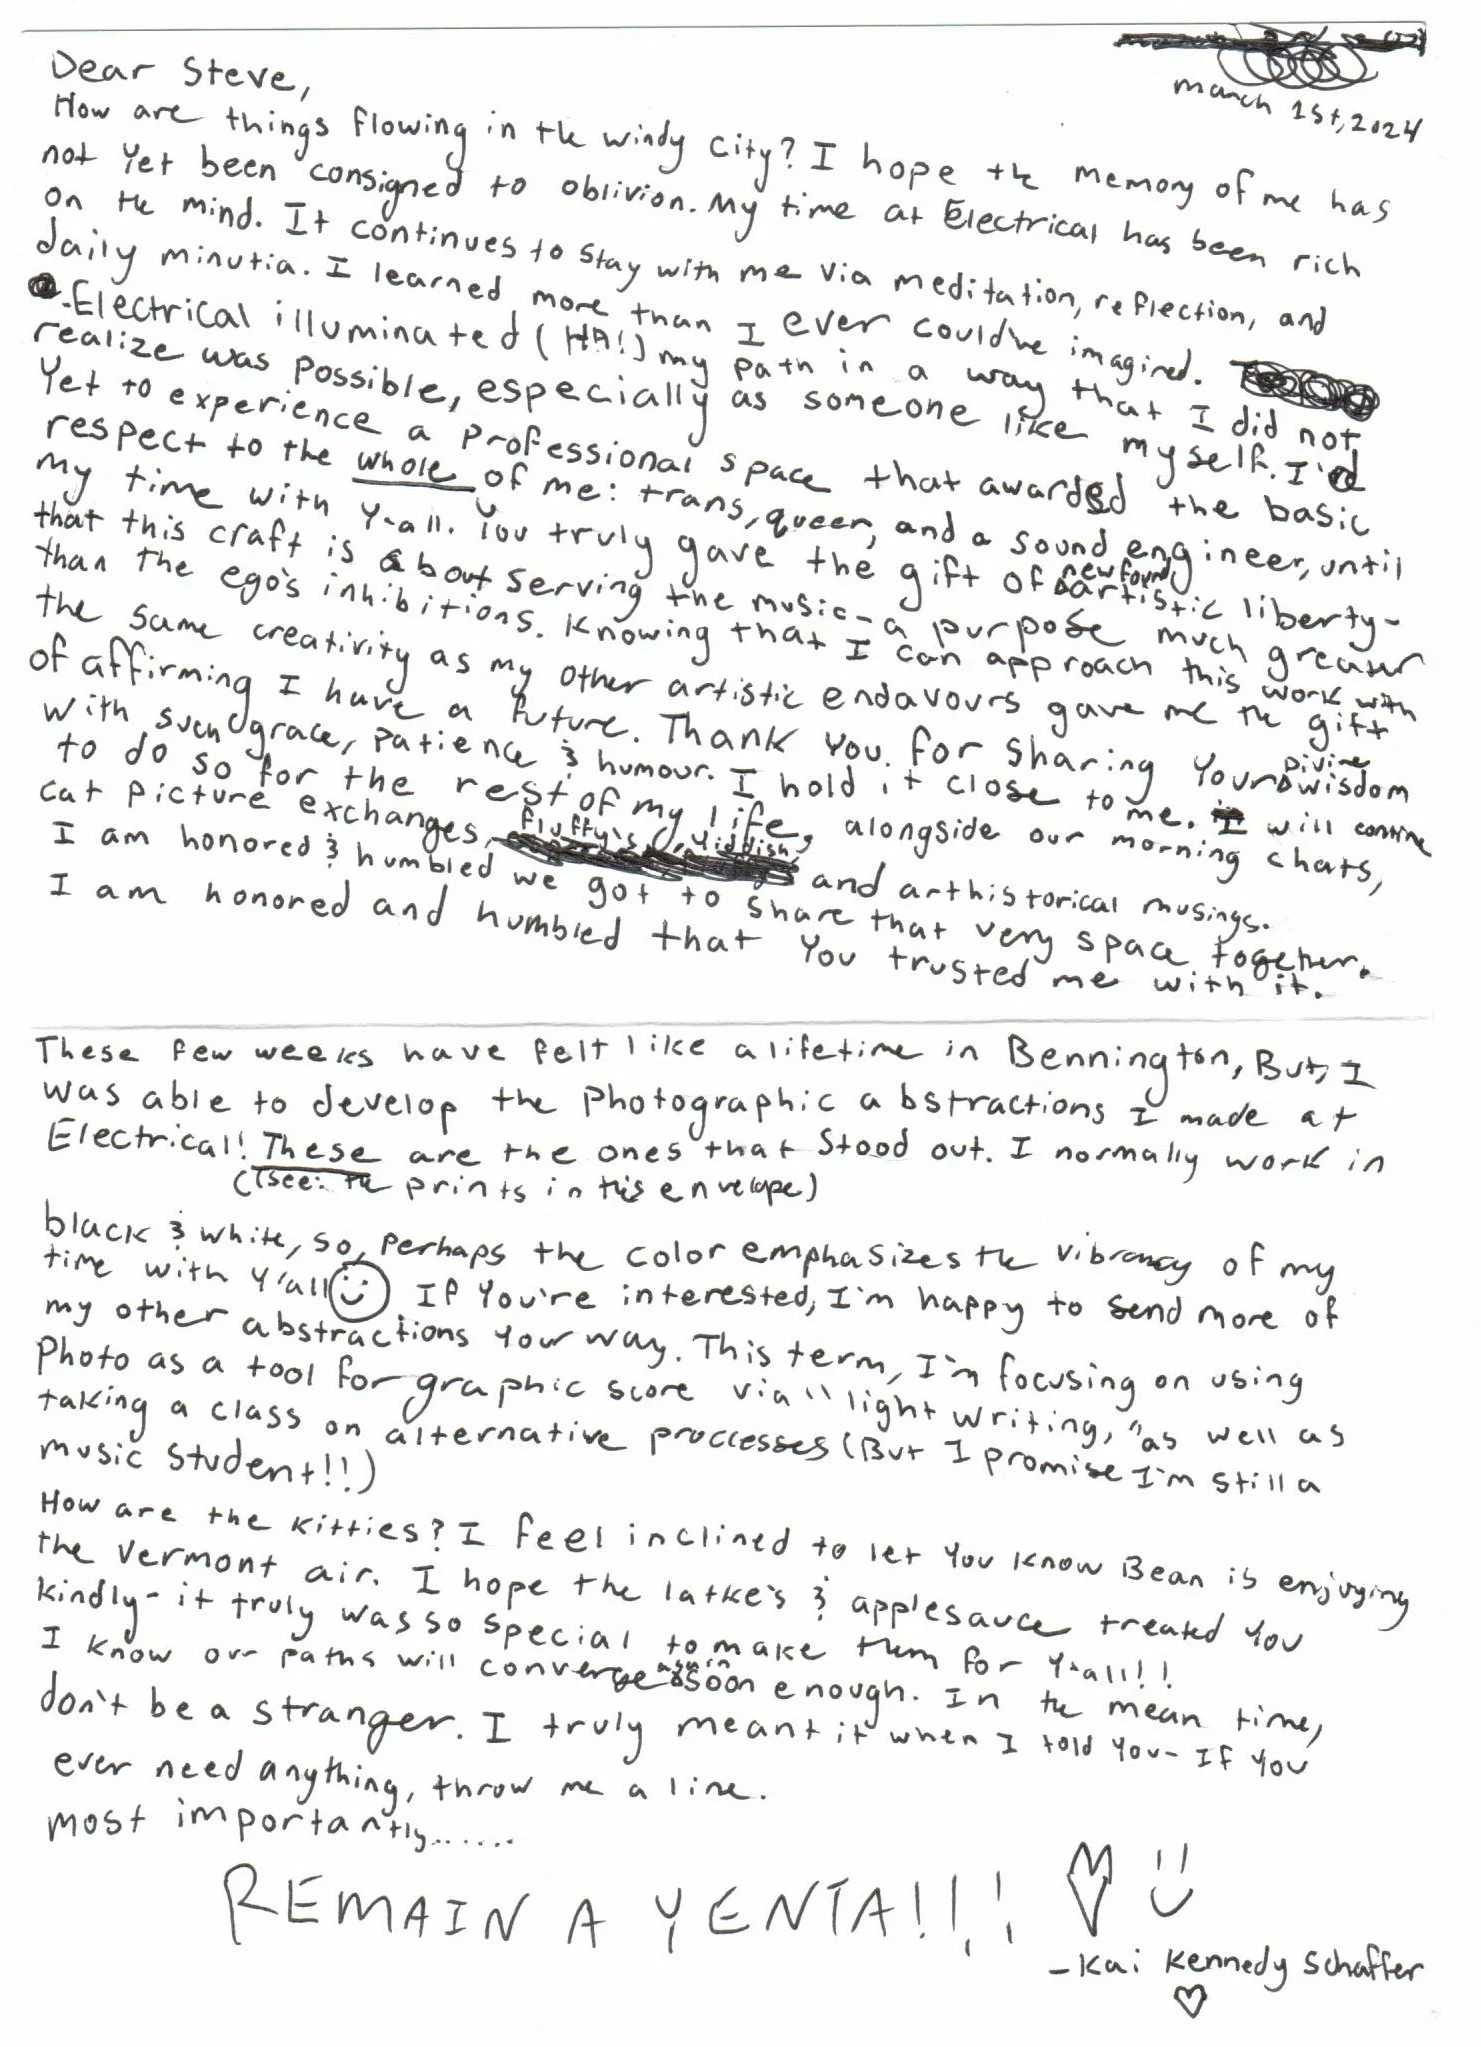 march 1st, 2024
Dear Steve,
How are things flowing in the windy city? I hope the memory of me has
not yet been consigned to oblivion. My time at Electrical has been rich
on the mind. It continues to stay with me via meditation, reflection, and
daily minutia. I learned more than I ever could've imagined.
-Electrical illuminated (HA!) my path in a way that I did not
realize was possible, especially as someone like myself. I'd
yet to experience a professional space that awarded the basic
respect to the whole of me: trans, queer, and a sound engineer, until
my time with y'all. You truly gave the gift of newfound artistic liberty-
that this craft is about serving the music - a purpose much greater
than the ego's inhibitions. Knowing that I can approach this work with
the same creativity as my other artistic endavours gave me the gift
of affirming I have a future. Thank you for sharing your divine wisdom
with such grace, patience & humour. I hold it close to me. I will contine
to do so for the rest of my life, alongside our morning chats,
cat picture exchanges, fluffy's, yiddish, and arthistorical musings.
I am honored & humbled we got to share that very space together.
I am honored and humbled that you trusted me with it.
These few weeks have felt like a lifetime in Bennington, But, I
was able to develop the photographic abstractions I made at
Electrical! These are the ones that stood out. I normally work in
(see: the prints in this envelope)
black & white, so, perhaps the color emphasizes the vibrancy of my
time with y'all If you're interested, I'm happy to send more of
my other abstractions your way. This term, I'm focusing on using
photo as a tool for graphic score via "light writing," as well as
taking a class on alternative proccesses (But I promise I'm still a
music student!!)
How are the kitties? I feel inclined to let you know Bean is enjoying
the Vermont air. I hope the latke's & applesauce treated you
kindly- it truly was so special to make them for y'all!!
I know our paths will converge again soon enough. In the mean time,
don't be a stranger. I truly meant it when I told you- If you
ever need anything, throw me a line.
most importantly......
REMAIN A YENTA!!!
-Kai Kennedy Schaffer